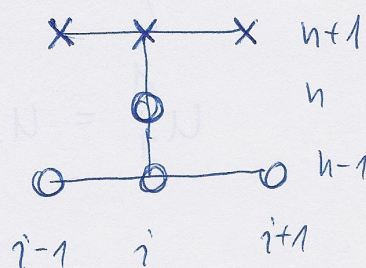 n+1
n
n-1
i-1 i i+1